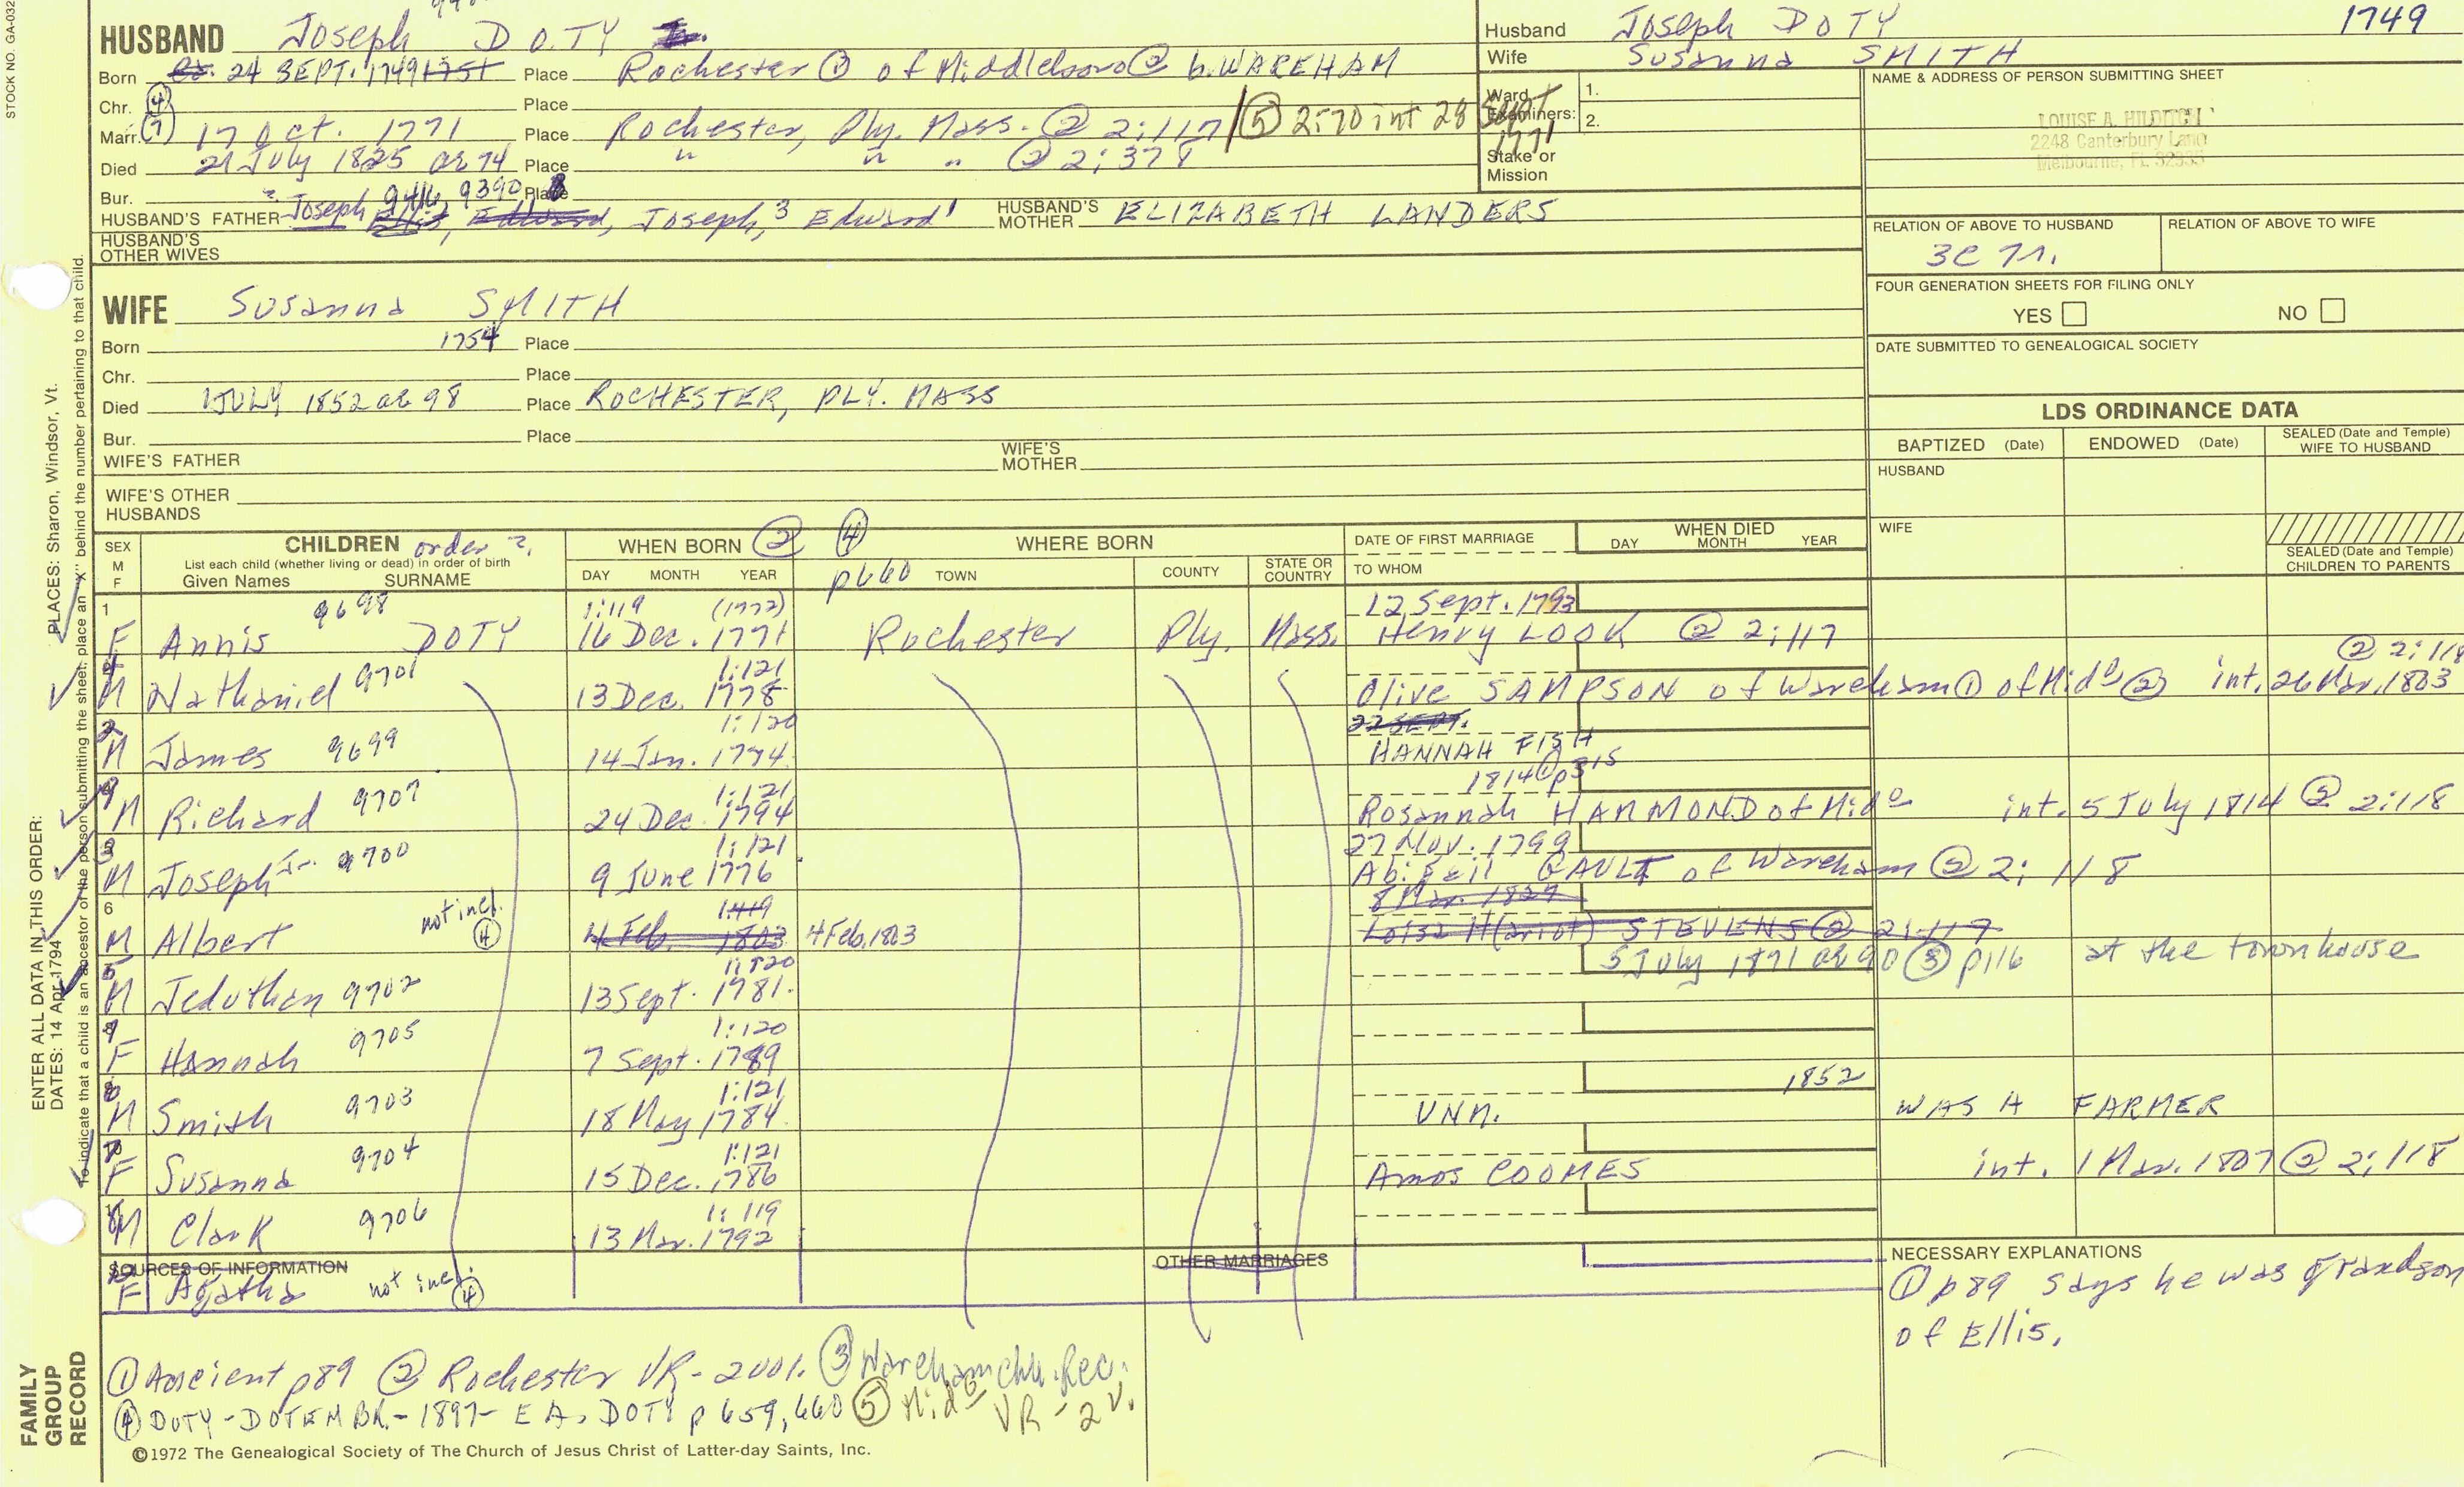 STOCK NO. GA-032
HUSBAND Joseph DOTY
Born 24 SEPT. 1749 1751 Place Rochester ① of Middleboro ② b. WAREHAM
Chr. ④ Place
Marr. ① 17 Oct. 1771 Place Rochester, Ply. Mass. @ 2:117 / ⑤ 2:70 int 28 Sept 1771
Died 21 July 1825 ae 74 Place " " " @ 2:378
Bur. Place
? Joseph 9416, 9390
HUSBAND'S FATHER Joseph Ellis, Edward, Joseph,3 Edward1 HUSBAND'S MOTHER ELIZABETH LANDERS
HUSBAND'S OTHER WIVES
Husband Joseph DOTY 1749
Wife Susanna SMITH
Ward Examiners: 1.
2.
Stake or Mission
NAME & ADDRESS OF PERSON SUBMITTING SHEET
LOUISE A. HILDITCH
2248 Canterbury Lane
Melbourne, FL 32935
RELATION OF ABOVE TO HUSBAND RELATION OF ABOVE TO WIFE
3C 7r.
FOUR GENERATION SHEETS FOR FILING ONLY
YES NO
DATE SUBMITTED TO GENEALOGICAL SOCIETY
WIFE Susanna SMITH
Born 1754 Place
Chr. Place
Died 1 JULY 1852 ae 98 Place ROCHESTER, PLY. MASS
Bur. Place
WIFE'S FATHER WIFE'S MOTHER
WIFE'S OTHER HUSBANDS
LDS ORDINANCE DATA
BAPTIZED (Date) ENDOWED (Date) SEALED (Date and Temple) WIFE TO HUSBAND
HUSBAND
WIFE
SEALED (Date and Temple) CHILDREN TO PARENTS
SEX M F CHILDREN order ?. WHEN BORN ② ④ WHERE BORN DATE OF FIRST MARRIAGE WHEN DIED
List each child (whether living or dead) in order of birth
Given Names SURNAME DAY MONTH YEAR p660 TOWN COUNTY STATE OR COUNTRY TO WHOM DAY MONTH YEAR
1 9698 1:119 (1772) 12 Sept. 1793
F Annis DOTY 16 Dec. 1771 Rochester Ply. Mass. Henry LOOK @ 2:117
4 1:121 @ 2:118
M Nathaniel 9701 13 Dec. 1778 Olive SAMPSON of Wareham ① of Mido ② int. 26 Mar. 1803
2 1:120 22 SEPT.
M James 9699 14 Jan. 1774 HANNAH FISH
9 1:121 1814 ① p315
M Richard 9707 24 Dec. 1794 Rosannah HAMMOND of Mido int. 5 July 1814 @ 2:118
3 1:121 27 Nov. 1799
M Joseph Jr. 9700 9 June 1776 Abigail GAULT of Wareham @ 2:118
6 not incl. ④ 1:119 8 Mar. 1829
M Albert 4 Feb. 1803 4 Feb, 1803 Loisa H(ariot) STEVENS @ 2:117
5 1:120 5 July 1871 ae 90 ③ p116 at the townhouse
M Jeduthan 9702 13 Sept. 1781
8 1:120
F Hannah 9705 7 Sept. 1789
6 1:121 1852
M Smith 9703 18 May 1784 UNM. WAS A FARMER
7 1:121
F Susanna 9704 15 Dec. 1786 Amos COOMES int. 1 Mar. 1807 @ 2:118
1:119
M Clark 9706 13 Mar. 1792
SOURCES OF INFORMATION OTHER MARRIAGES NECESSARY EXPLANATIONS
F Agatha not incl. ④
① p89 says he was grandson
of Ellis.
① Ancient p89 ② Rochester VR-2001. ③ Wareham Chh. Rec.
④ DOTY-DOTEN BK.-1897- E A. DOTY p 659, 660 ⑤ Mido VR-2v.
©1972 The Genealogical Society of The Church of Jesus Christ of Latter-day Saints, Inc.
ENTER ALL DATA IN THIS ORDER:
PLACES: Sharon, Windsor, Vt.
DATES: 14 Apr 1794
To indicate that a child is an ancestor of the person submitting the sheet, place an "X" behind the number pertaining to that child.
FAMILY
GROUP
RECORD